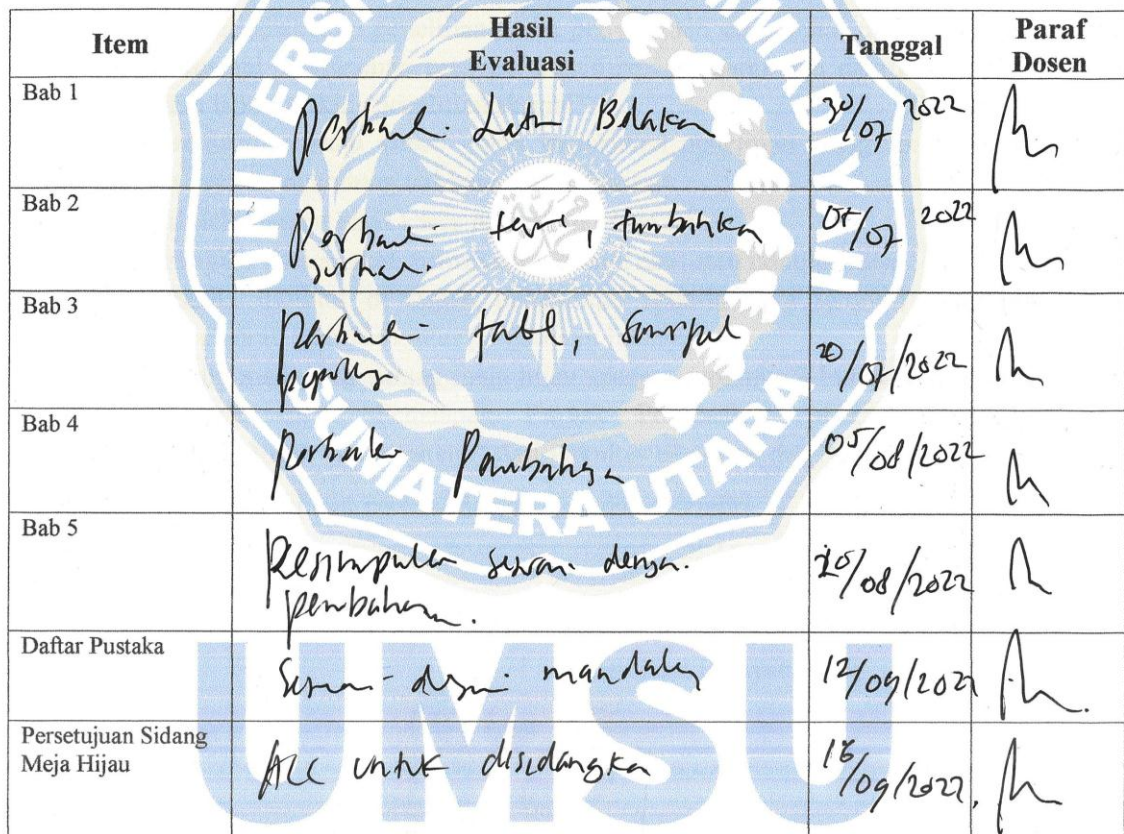 Item Hasil Evaluasi Tanggal Paraf Dosen
Bab 1 Perbaiki Latar Belakang 30/07 2022
Bab 2 Perbaiki teori, tambahkan 2022
jurnal.
Bab 3 Perbaiki tabel, sampel 20/07/2022
populasi
Bab 4 Perbaiki Pembahasan 05/08/2022
Bab 5 Kesimpulan sesuai dengan 20/08/2022
pembahasan.
Daftar Pustaka Sesuai dengan mandaley 12/09/2022
Persetujuan Sidang
Meja Hijau ACC untuk disidangkan /09/2022
UNIVERSI MMADIYAH
SUMATERA UTARA
UMSU